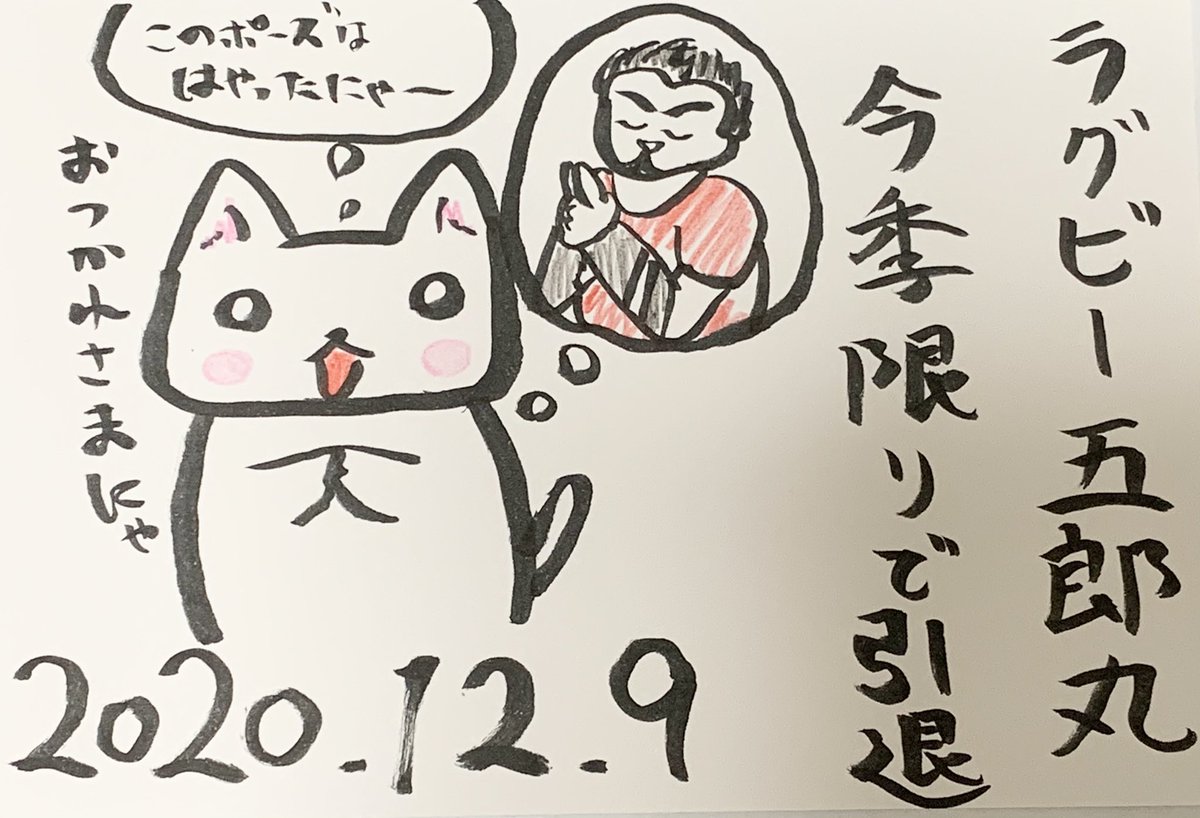 ラグビー五郎丸
今季限りで引退
このポーズは
はやったにゃー
おつかれさまにゃ
2020.12.9